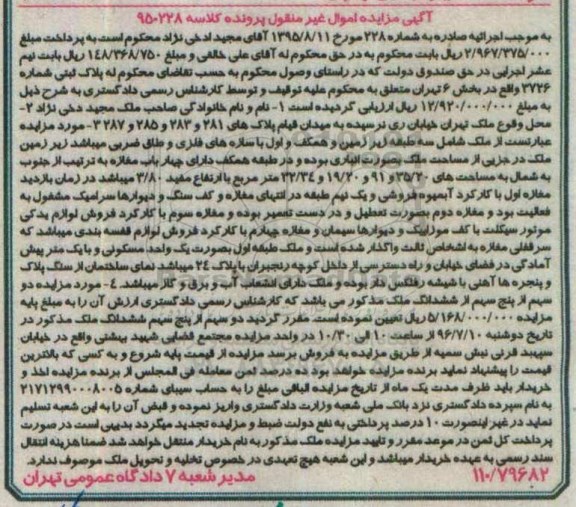 آگهی مزایده اموال غیر منقول پرونده کلاسه ۹۵۰۲۲۸
به موجب اجرائیه صادره به شماره ۲۲۸ مورخ ۱۳۹۵/۸/۱۱ آقای مجید ادخی نژاد محکوم است به پرداخت مبلغ
۲/۹۶۷/۳۷۵/۰۰۰ ریال بابت محکوم به در حق محکوم له آقای علی خالقی و مبلغ ۱۴۸/۳۶۸/۷۵۰ ریال بابت نیم
عشر اجرایی در حق صندوق دولت که در راستای وصول محکوم به حسب تقاضای محکوم له پلاک ثبتی شماره
۳۷۲۶ واقع در بخش ۶ تهران متعلق به محکوم علیه توقیف و توسط کارشناس رسمی دادگستری به شرح ذیل
به مبلغ ۱۲/۹۲۰/۰۰۰/۰۰۰ ریال ارزیابی گردیده است ۱- نام و نام خانوادگی صاحب ملک مجید دخی نژاد ۲-
محل وقوع ملک تهران خیابان ری نرسیده به میدان قیام پلاک های ۲۸۱ و ۲۸۳ و ۲۸۵ و ۲۸۷ ۳- مورد مزایده
عبارتست از ملک شامل سه طبقه زیر زمین و همکف و اول با سازه های فلزی و طاق ضربی میباشد زیر زمین
ملک در جزیی از مساحت ملک بصورت انباری بوده و در طبقه همکف دارای چهار باب مغازه به ترتیب از جنوب
به شمال به مساحت های ۳۵/۲۰ و ۹۱ و ۱۹/۲۰ و ۳۲/۳۴ متر مربع با ارتفاع مفید ۳/۸۰ میباشد در زمان بازدید
مغازه اول با کارکرد آبمیوه فروشی و یک نیم طبقه در انتهای مغازه و کف سنگ و دیوارها سرامیک مشغول به
فعالیت بود و مغازه دوم بصورت تعطیل و در دست تعمیر بوده و مغازه سوم با کارکرد فروش لوازم یدکی
موتور سیکلت با کف موزاییک و دیوارها سیمان و مغازه چهارم با کارکرد فروش لوازم قفسه بندی میباشد که
سرقفلی مغازه به اشخاص ثالث واگذار شده است و ملک طبقه اول بصورت یک واحد مسکونی و با یک متر پیش
آمادگی در فضای خیابان و راه دسترسی از داخل کوچه رنجبران با پلاک ۲۴ میباشد نمای ساختمان از سنگ پلاک
و پنجره ها آهنی با شیشه رفلکس دار بوده و ملک دارای انشعاب آب و برق و گاز میباشد. ۴- مورد مزایده دو
سهم از پنج سهم از ششدانگ ملک مذکور می باشد که کارشناس رسمی دادگستری ارزش آن را به مبلغ پایه
مزایده ۵/۱۶۸/۰۰۰/۰۰۰ ریال تعیین نموده است. مقرر گردید دو سهم از پنج سهم ششدانگ ملک مذکور در
تاریخ دوشنبه ۹۶/۷/۱۰ از ساعت ۱۰ الی ۱۰/۳۰ در واحد مزایده مجتمع قضایی شهید بهشتی واقع در خیابان
سپهبد قرنی نبش سمیه از طریق مزایده به فروش برسد مزایده از قیمت پایه شروع و به کسی که بالاترین
قیمت را پیشنهاد نماید برنده مزایده خواهد بود ده درصد ثمن معامله فی المجلس از برنده مزایده اخذ و
خریدار باید ظرف مدت یک ماه از تاریخ مزایده الباقی مبلغ را به حساب سیبای شماره ۲۱۷۱۲۹۹۰۰۰۸۰۰۵
به نام سپرده دادگستری نزد بانک ملی شعبه وزارت دادگستری واریز نموده و قبض آن را به این شعبه تسلیم
نماید در غیر اینصورت ۱۰ درصد پرداختی به نفع دولت ضبط و مزایده تجدید میگردد بدیهی است در صورت
پرداخت کل ثمن در موعد مقرر و تایید مزایده ملک مذکور به نام خریدار منتقل خواهد شد ضمنا هزینه انتقال
سند رسمی به عهده خریدار میباشد و این شعبه هیچ تعهدی در خصوص تخلیه و تحویل ملک موصوف ندارد.
مدیر شعبه ۷ دادگاه عمومی تهران
۱۱۰/۷۹۶۸۲